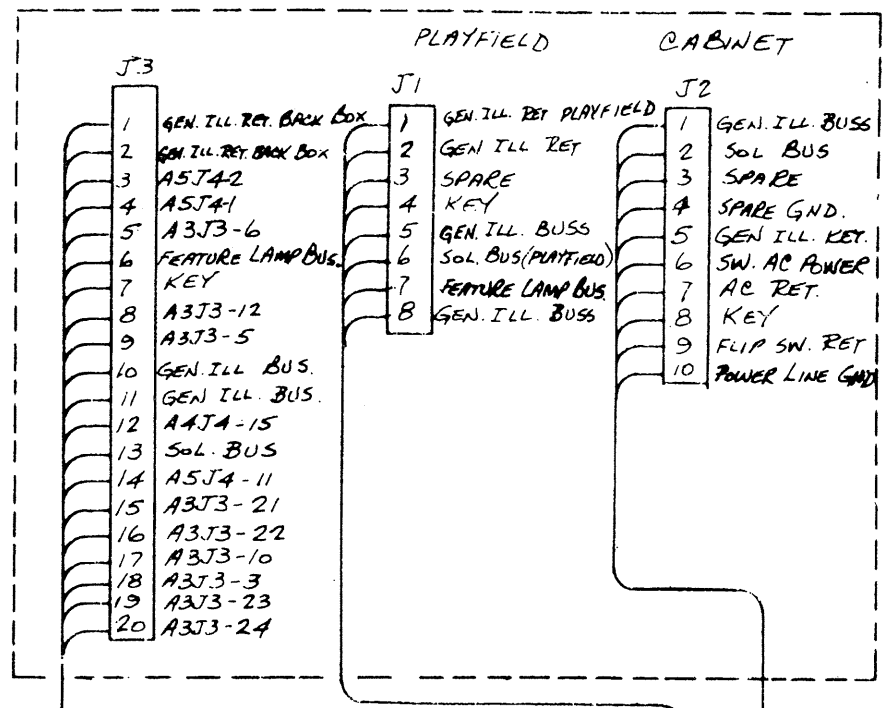 PLAYFIELD
CABINET
J3
1 GEN. ILL. RET. BACK BOX
2 GEN. ILL. RET. BACK BOX
3 A5J4-2
4 A5J4-1
5 A3J3-6
6 FEATURE LAMP BUS.
7 KEY
8 A3J3-12
9 A3J3-5
10 GEN. ILL BUS.
11 GEN ILL. BUS.
12 A4J4-15
13 SOL. BUS
14 A5J4-11
15 A3J3-21
16 A3J3-22
17 A3J3-10
18 A3J3-3
19 A3J3-23
20 A3J3-24
J1
1 GEN. ILL. RET PLAYFIELD
2 GEN ILL RET
3 SPARE
4 KEY
5 GEN. ILL. BUSS
6 SOL. BUS (PLAYFIELD)
7 FEATURE LAMP BUS.
8 GEN. ILL. BUSS
J2
1 GEN. ILL. BUSS
2 SOL BUS
3 SPARE
4 SPARE GND.
5 GEN ILL. KEY.
6 SW. AC POWER
7 AC RET.
8 KEY
9 FLIP SW. RET
10 POWER LINE GND